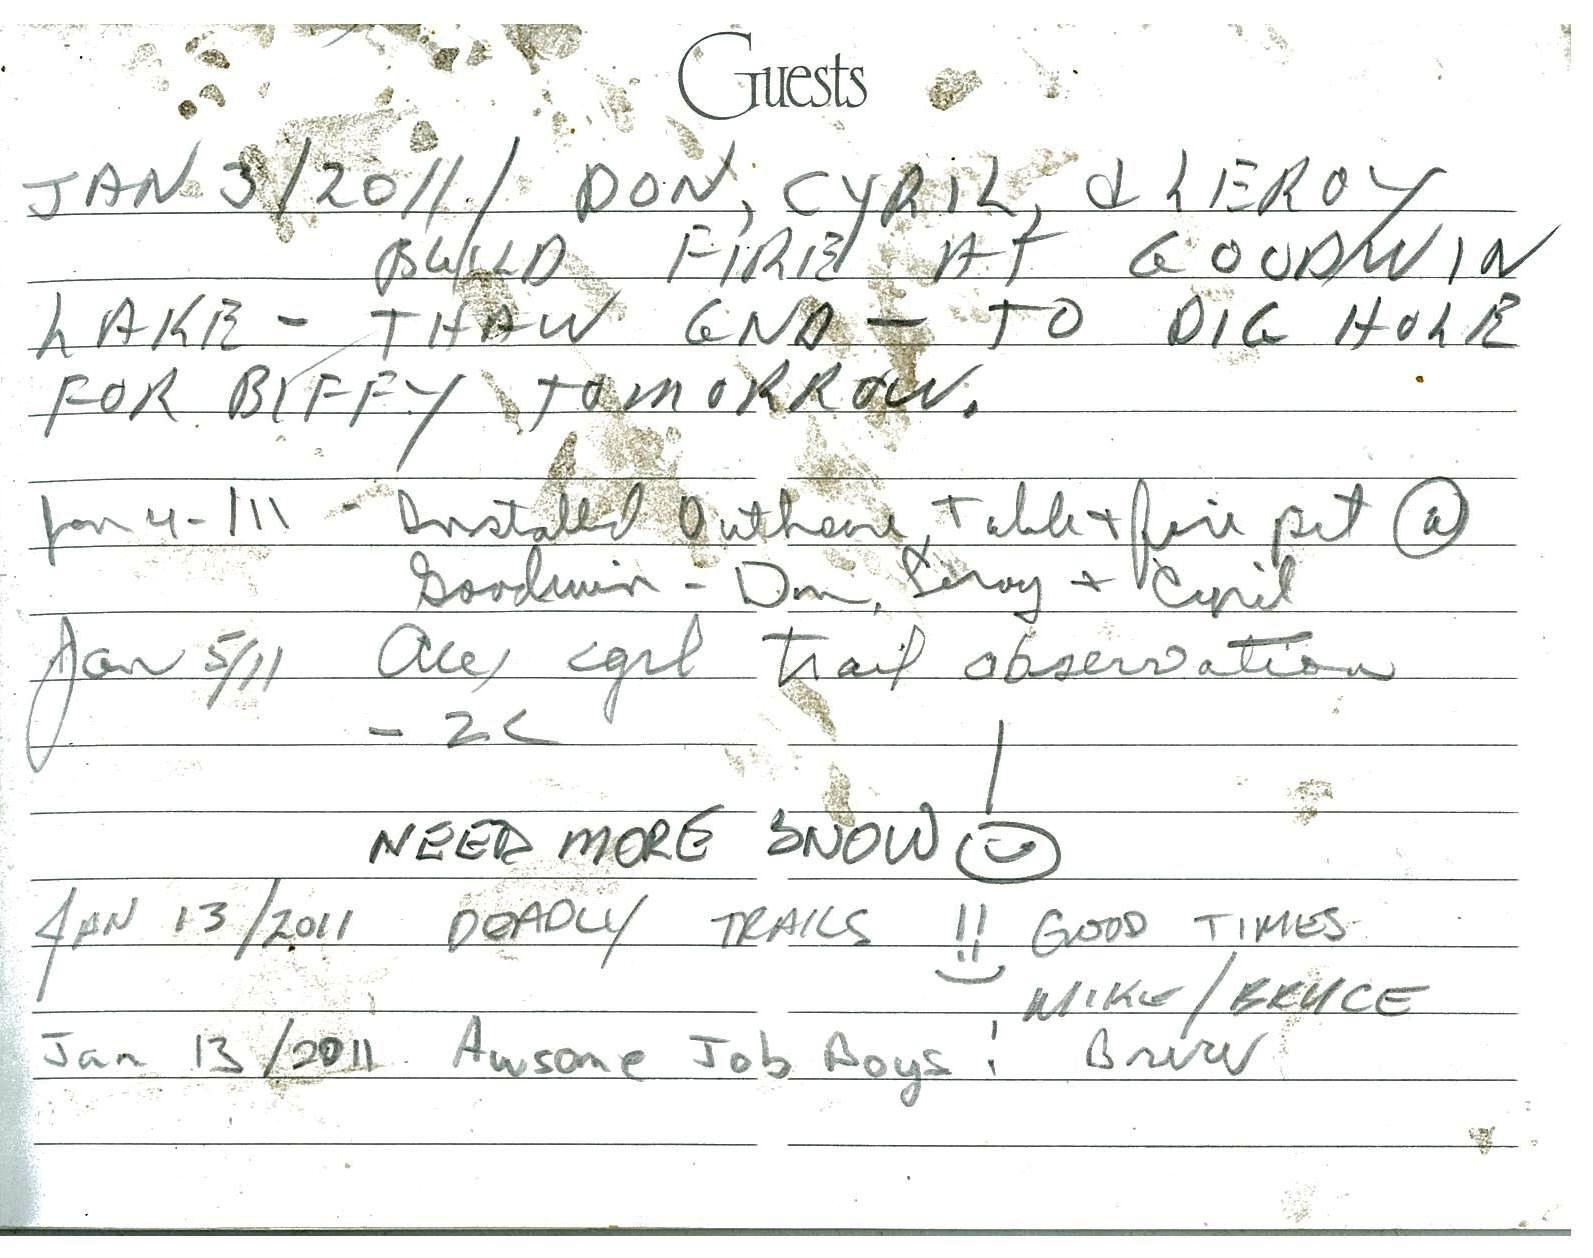 Guests
JAN 3/2011/ DON, CYRIL, & LEROY
BUILD FIRE AT GOODWIN
LAKE - THAW GND - TO DIG HOLE
FOR BIFFY TOMORROW.
Jan 4-/11 - Installed Outhouse, Table + fire pit @
Goodwin - Don, Leroy + Cyril
Jan 5/11 trail observation
NEED MORE SNOW!
JAN 13/2011 DEADLY TRAILS !! GOOD TIMES
MIKE/BRUCE
Jan 13/2011 Awsome Job Boys!